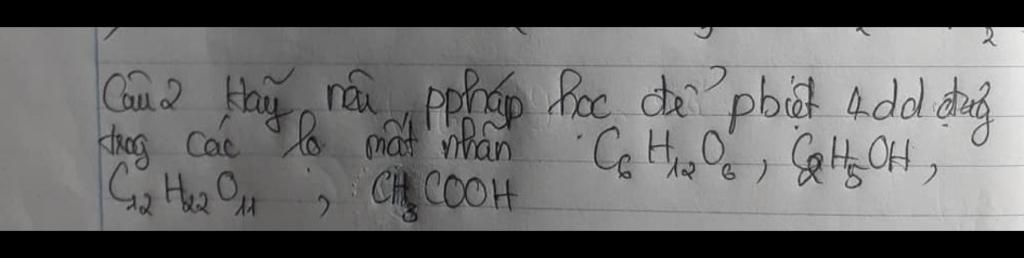 Câu2 Hãy nêu ppháp học để pbiệt 4dd đựng
trog các lọ mất nhãn C₆H₁₂O₆, C₂H₅OH,
C₁₂H₂₂O₁₁, CH₃COOH